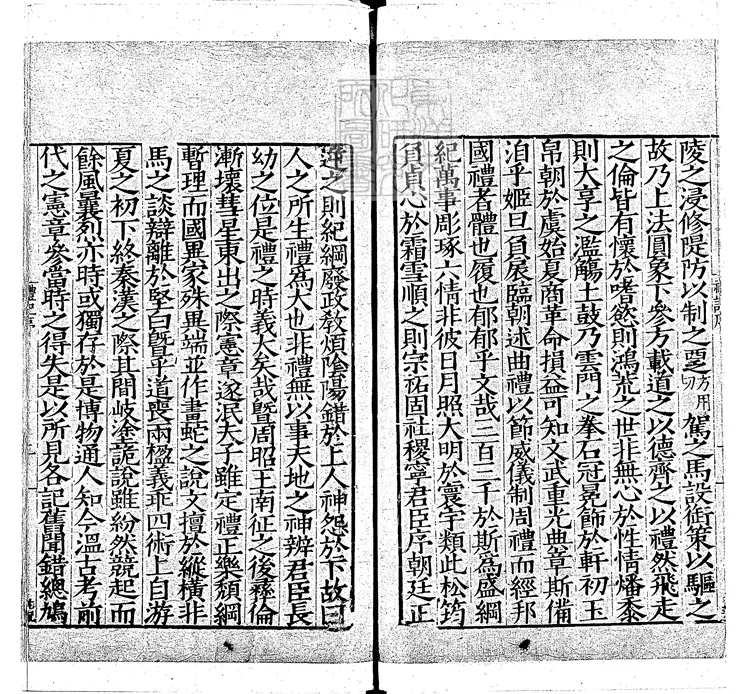 陵之浸修隄防以制之覂方用切駕之馬設銜策以驅之
故乃上法圓象下參方載道之以德齊之以禮然飛走
之倫皆有懷於嗜慾則鴻荒之世非無心於性情燔黍
則大享之濫觴土鼓乃雲門之拳石冠冕飾於軒初玉
帛朝於虞始夏商革命損益可知文武重光典章斯備
洎乎姬旦負扆臨朝述曲禮以節威儀制周禮而經邦
國禮者體也履也郁郁乎文哉三百三千於斯爲盛綱
紀萬事彫琢六情非彼日月照大明於寰宇類此松筠
負貞心於霜雪順之則宗祏固社稷寧君臣序朝廷正
逆之則紀綱廢政敎煩陰陽錯於上人神怨於下故曰
人之所生禮爲大也非禮無以事天地之神辨君臣長
幼之位是禮之時義大矣哉曁周昭王南征之後彝倫
漸壞彗星東出之際憲章遂泯夫子雖定禮正樂頹綱
暫理而國異家殊異端並作畫蛇之說文擅於縱橫非
馬之談辯離於堅白曁乎道喪兩楹義乖四術上自游
夏之初下終秦漢之際其間岐塗詭說雖紛然競起而
餘風曩烈亦時或獨存於是博物通人知今溫古考前
代之憲章參當時之得失是以所見各記舊聞錯總鳩